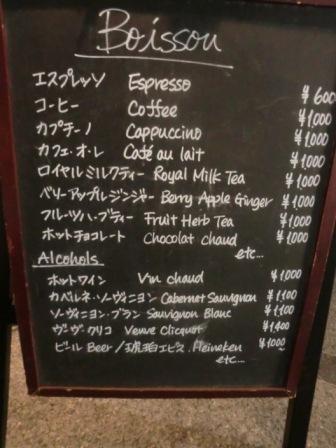 Boisson
エスプレッソ Espresso ¥600
コーヒー Coffee ¥1,000
カプチーノ Cappuccino ¥1,000
カフェ・オ・レ Café au lait ¥1,000
ロイヤルミルクティー Royal Milk Tea ¥1,000
ベリーアップルジンジャー Berry Apple Ginger ¥1,000
フルーツハーブティー Fruit Herb Tea ¥1,000
ホットチョコレート Chocolat chaud ¥1,000
etc...
Alcohols
ホットワイン Vin chaud ¥1,000
カベルネ・ソーヴィニヨン Cabernet Sauvignon ¥1,100
ソーヴィニヨン・ブラン Sauvignon Blanc ¥1,100
ヴーヴ・クリコ Veuve Clicquot ¥1,400
ビール Beer/琥珀エビス.Heineken ¥1000~
etc...